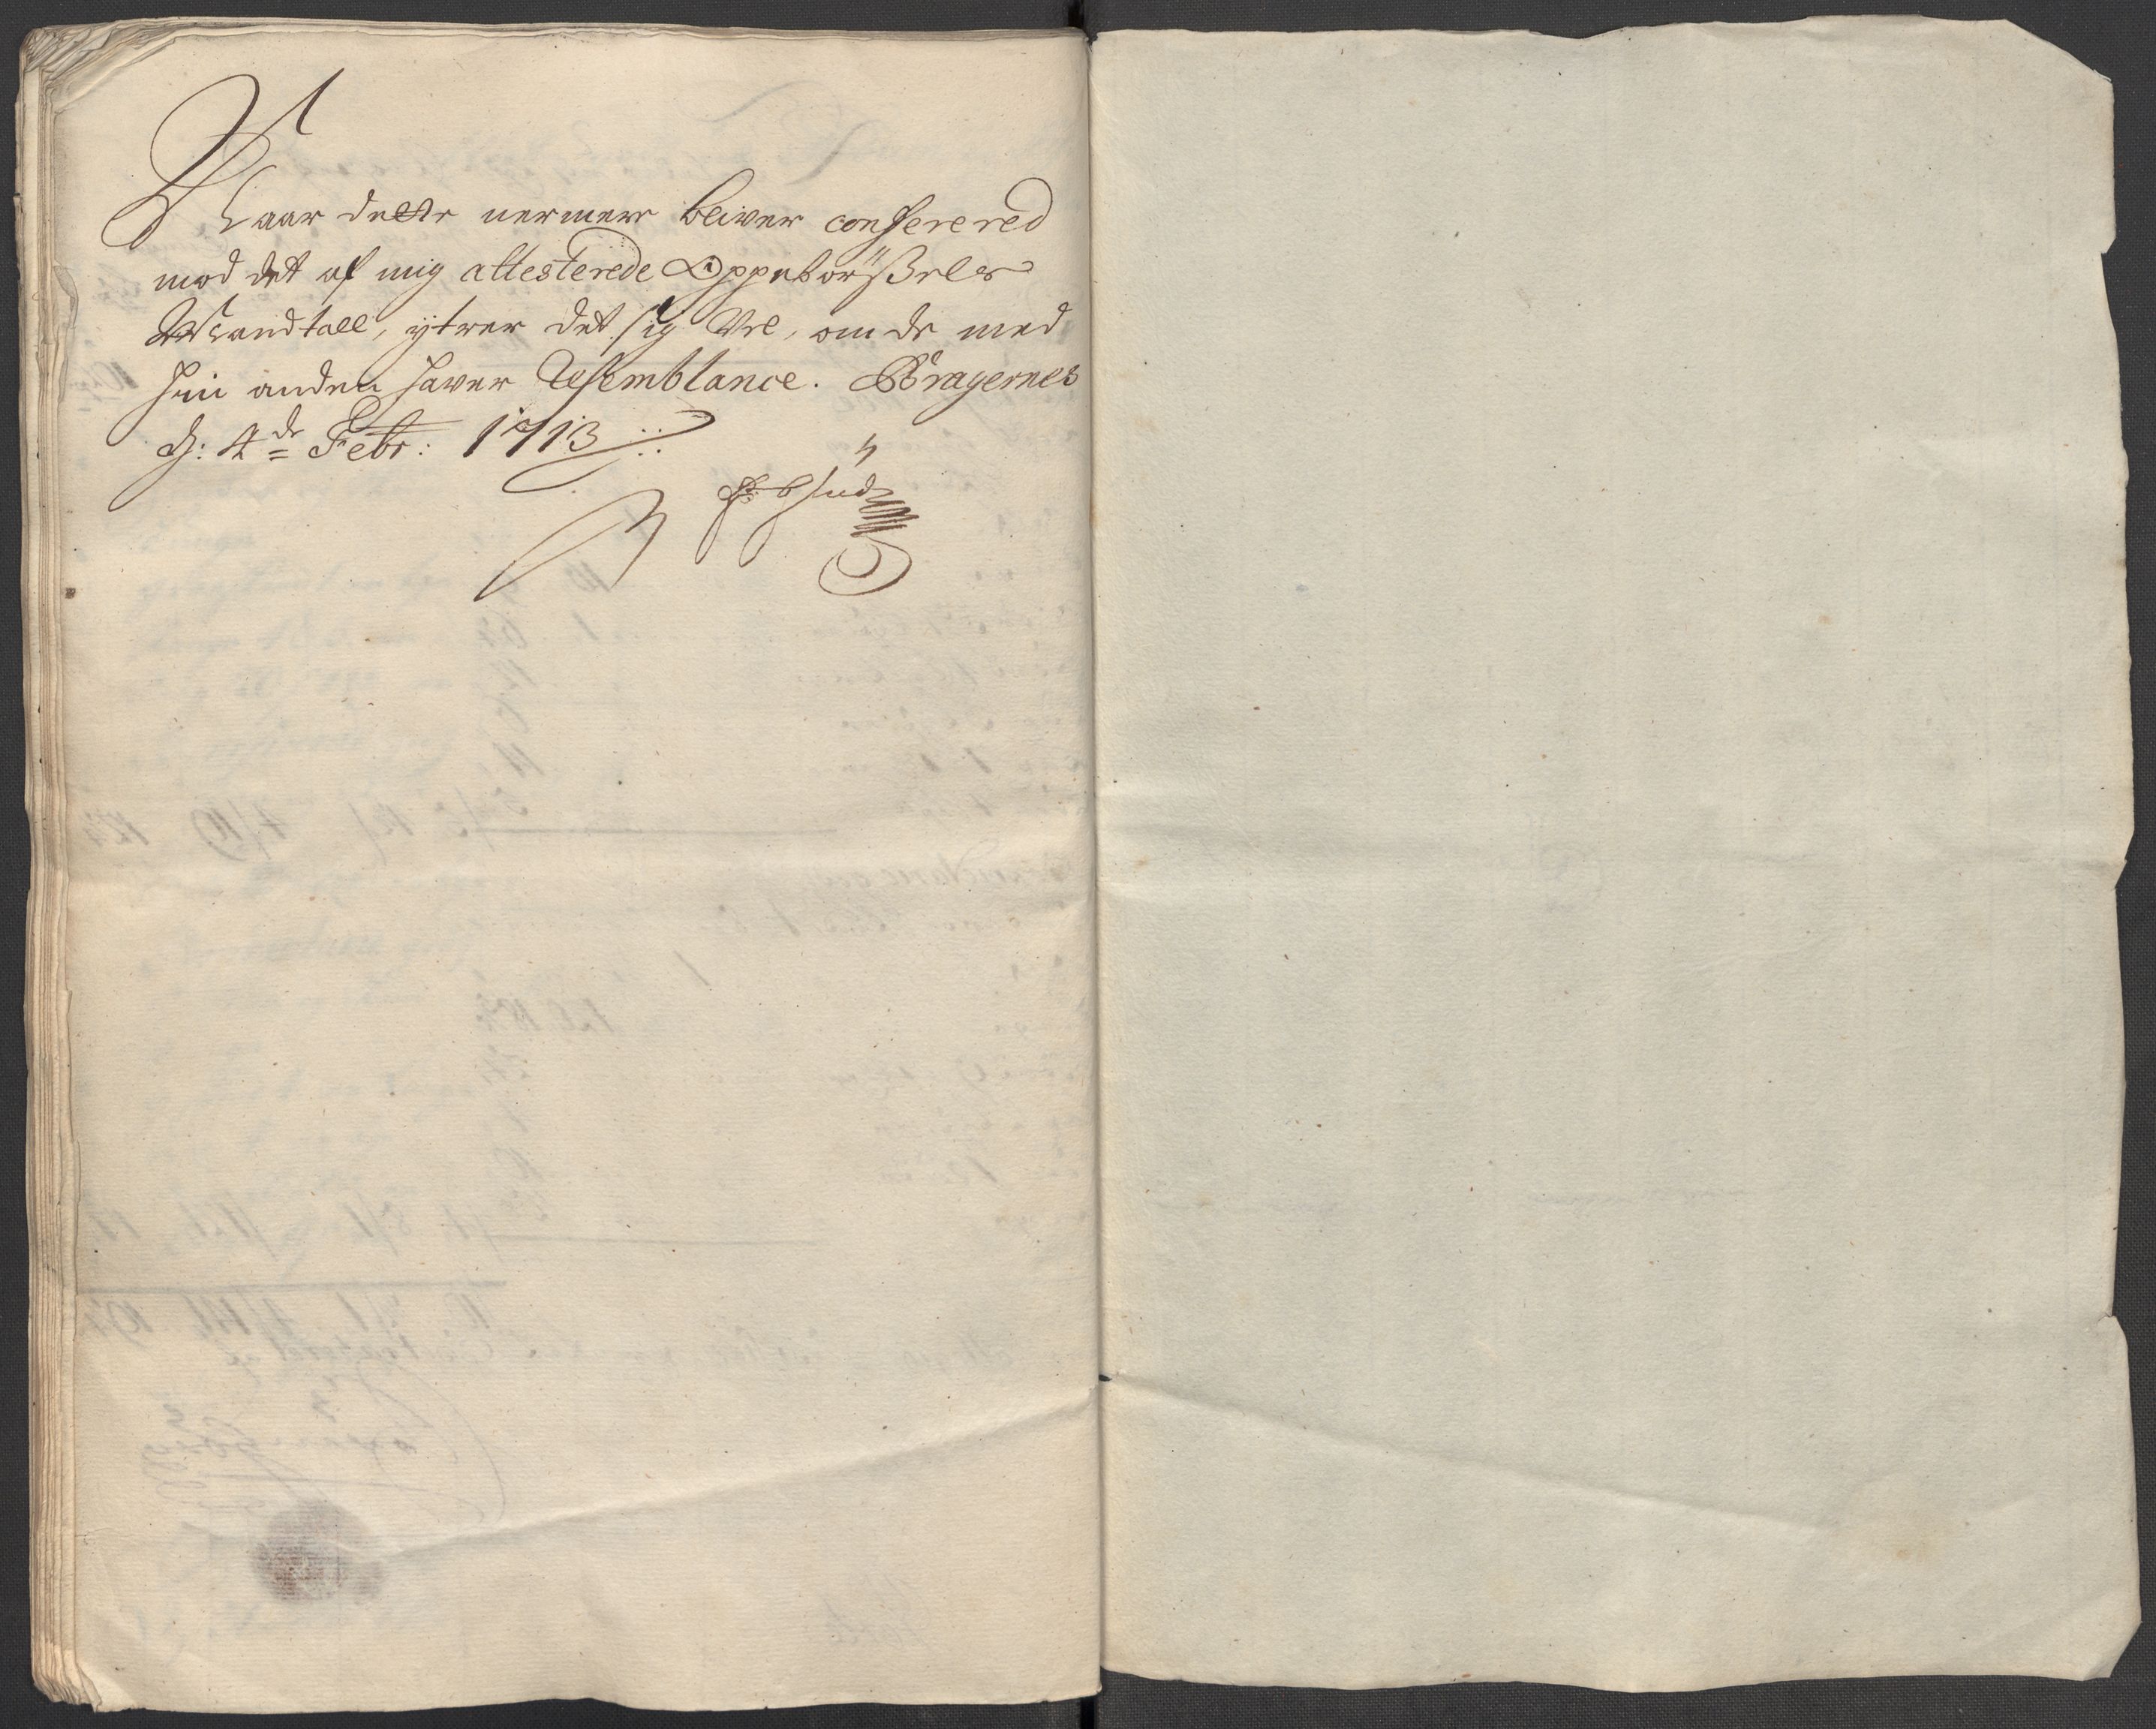 Naar dette nermere bliver conferered
mod det af mig attesterede Oppebörßels
Mandtall, ytrer det sig Vel, om de med
hin anden haver Resemblance. Bragernes
d: 4de Febr: 1713